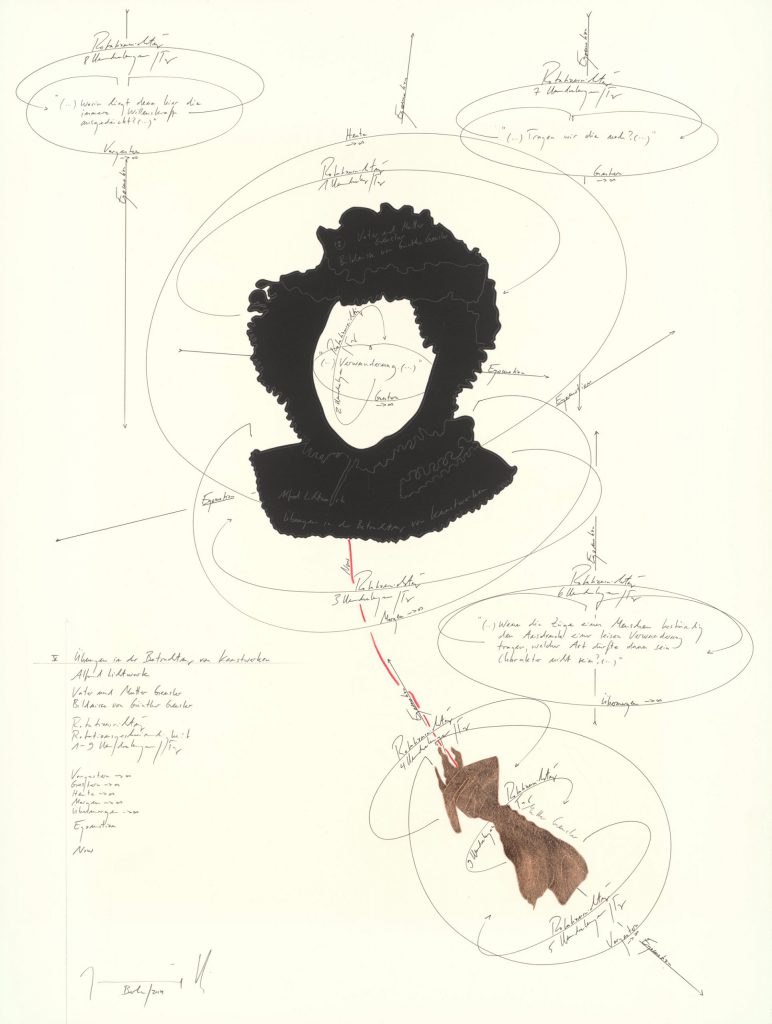 Rotationsrichtung
8 Umdrehungen/Tag
"(...) Worin liegt denn hier die
immense Willenskraft
ausgedrückt? (...)"
Vorgestern → ∞
Egomotion
Egomotion
Heute → ∞
Rotationsrichtung
1 Umdrehung/Tag
Egomotion
Rotationsrichtung
7 Umdrehungen/Tag
"(...) Tragen wir die noch? (...)"
Gestern → ∞
Vater und Mutter
Gensler
Bildnisse von Günther Gensler
Rotationsrichtung
2 Umdrehungen/Tag
"(...) Verwunderung. (...)"
Gestern → ∞
Egomotion
Egomotion
Alfred Lichtwark
Übungen in der Betrachtung von Kunstwerken
Egomotion
Now
Rotationsrichtung
3 Umdrehungen/Tag
Morgen → ∞
Egomotion
Rotationsrichtung
6 Umdrehungen/Tag
"(...) Wenn die Züge eines Menschen beständig
den Ausdruck einer leisen Verwunderung
tragen, welcher Art dürfte dann sein
Charakter nicht sein? (...)"
Übermorgen → ∞
Egomotion
Rotationsrichtung
4 Umdrehungen/Tag
Rotationsrichtung
Mutter Gensler
9 Umdrehungen
Rotationsrichtung
5 Umdrehungen/Tag
Vorgestern → ∞
Egomotion
V Übungen in der Betrachtung von Kunstwerken
Alfred Lichtwark
Vater und Mutter Gensler
Bildnisse von Günther Gensler
Rotationsrichtung
Rotationsgeschwindigkeit
1-9 Umdrehungen/Tag
Vorgestern → ∞
Gestern → ∞
Heute → ∞
Morgen → ∞
Übermorgen → ∞
Egomotion
Now
Berlin/2014